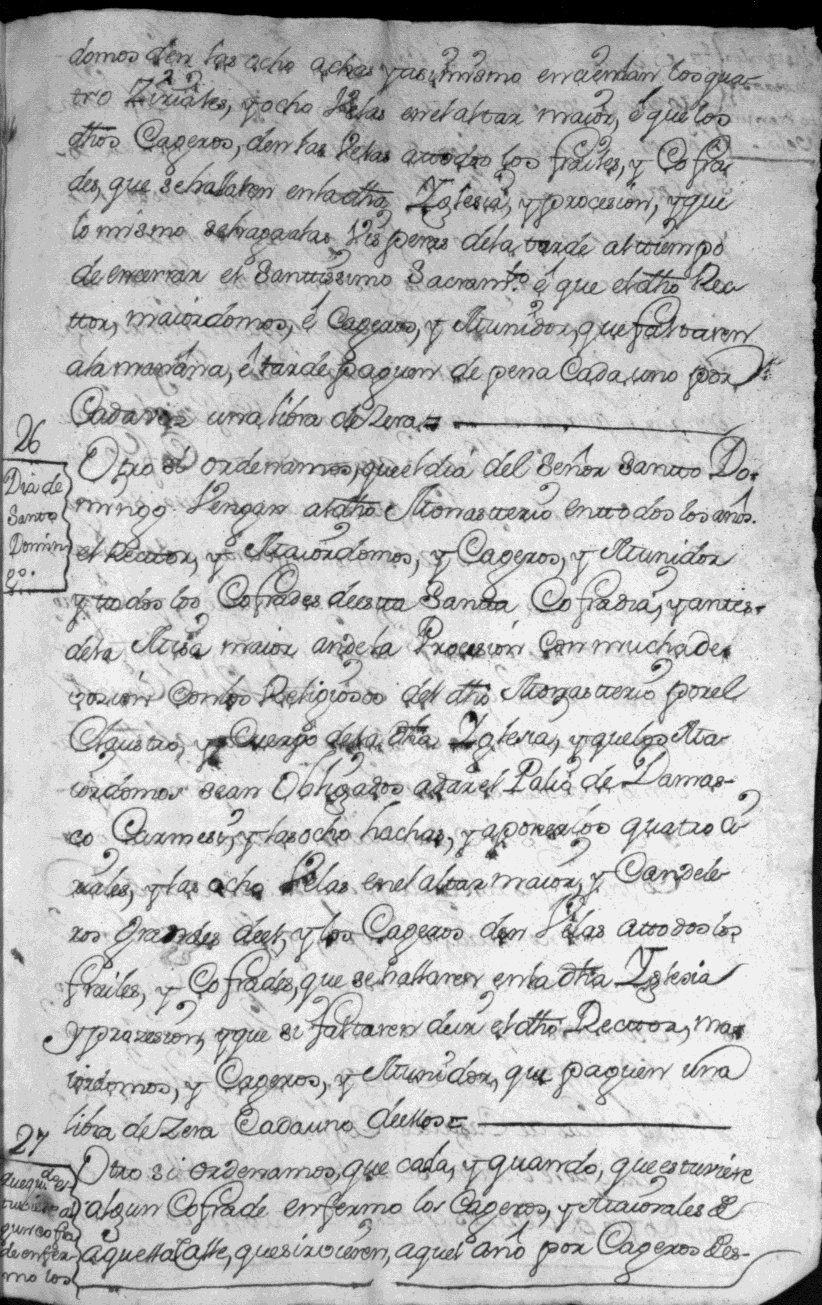 domos den las ocho achas y asimismo enciendan los qua-
tro Ziriales, y ocho Velas en el altar maior, é que los
dhos Cageros, den las Velas a ttodos los frailes, y Cofra-
des, que se hallaren en la dha Yglesia, y procesion, y que
lo mismo se haga a las Visperas de la tarde al ttiempo
de encerrar el Santtissimo Sacramto. é que el dho Rec-
ttor, maiordomos, é Cageros, y Munidor, que faltaren
a la mañana, é tarde paguen de pena Cada uno por
Cada vez una libra de Zera =
26
Dia de
Santo
Domin
go.
Otro si ordenamos, que el dia del Señor Santto Do-
mingo Vengan al dho Monasterio en ttodos los años
el Recttor, y Maiordomos, y Cageros, y Munidor
y ttodos los Cofrades de estta Santa Cofradia, y antes
de la Misa maior ande la Procesion con mucha de-
vocion con los Religiosos del dho Monastterio por el
Claustro, y Cuerpo de la dha Yglesia, y que los Ma-
iordomos sean Obligados a dar el Palio de Damas-
co Carmesi, y las ocho hachas, y a poner los quatro Ci-
riales, y las ocho Velas en el altar maior, y Candele-
ros grandes de el, y los Cageros den Velas a ttodos los
frailes, y Cofrades, que se hallaren en la dha Yglesia
y procesion, y que si faltaren de ir el dho Recttor, ma-
iordomos, y Cageros, y Munidor, que paguen una
libra de Zera Cada uno de ellos =
27
que qndo es-
tubiere al
gun cofra
de enfer-
mo los
Otro si ordenamos, que cada, y quando, que estuviere
algun Cofrade enfermo los Cageros, y Maiorales de
aquella Calle, que sirvieren, aquel año por Cageros des-